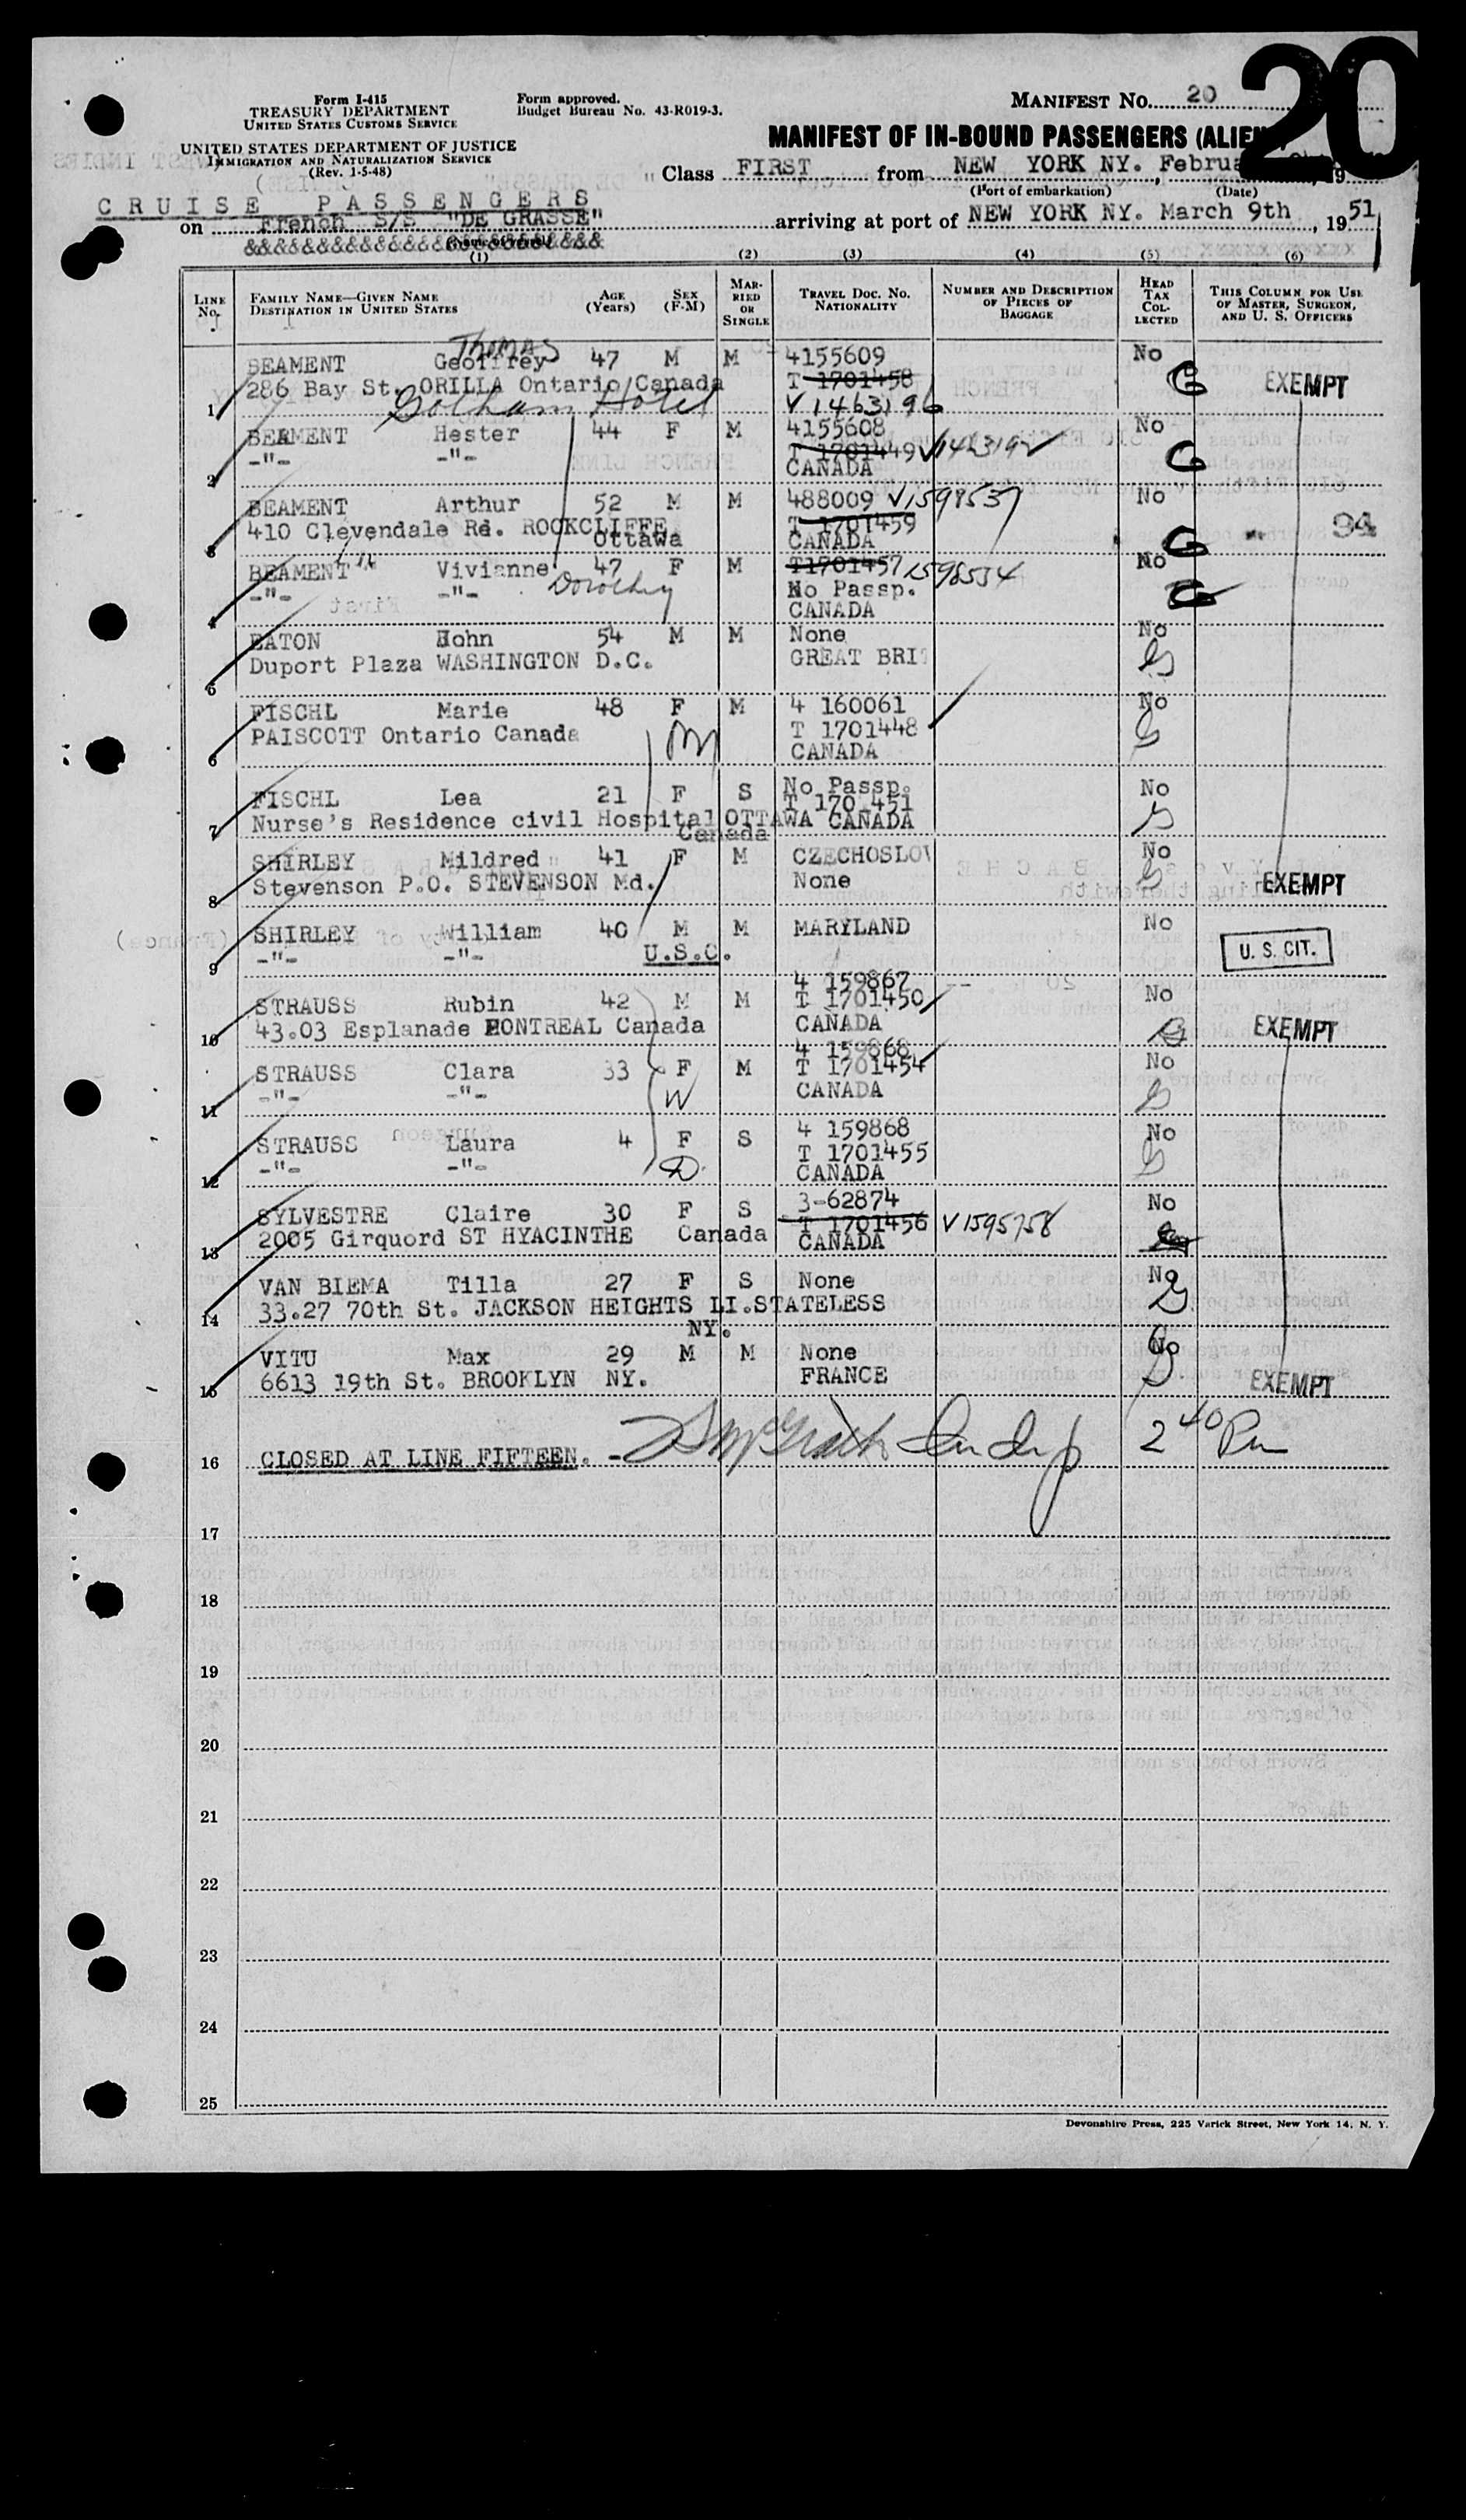 20
Form I-415
TREASURY DEPARTMENT
UNITED STATES CUSTOMS SERVICE
UNITED STATES DEPARTMENT OF JUSTICE
IMMIGRATION AND NATURALIZATION SERVICE
(Rev. 1-5-48)
Form approved.
Budget Bureau No. 43-R019-3.
MANIFEST No. 20
MANIFEST OF IN-BOUND PASSENGERS (ALIEN
Class FIRST from NEW YORK NY. Februa , 19
(Port of embarkation) (Date)
CRUISE PASSENGERS
on French S/S "DE GRASSE" arriving at port of NEW YORK NY. March 9th , 1951
&&&&&&&&&&&&&&&&&&&&&&&&&
(1) (2) (3) (4) (5) (6)
LINE No. FAMILY NAME—GIVEN NAME DESTINATION IN UNITED STATES AGE (Years) SEX (F-M) MARRIED OR SINGLE TRAVEL DOC. NO. NATIONALITY NUMBER AND DESCRIPTION OF PIECES OF BAGGAGE HEAD TAX COLLECTED THIS COLUMN FOR USE OF MASTER, SURGEON, AND U. S. OFFICERS
Thomas
BEAMENT Geoffrey 47 M M 4155609 No
286 Bay St. ORILLA Ontario Canada T 1701458 G EXEMPT
1 Gotham Hotel V1463196
BEAMENT Hester 44 F M 4155608 No
-"- -"- T 1701449 V1463192 G
2 CANADA
BEAMENT Arthur 52 M M 488009 V1598537 No
410 Clevendale Rd. ROCKCLIFFE T 1701459 94
3 Ottawa CANADA G
BEAMENT Vivianne 47 F M T1701457 1598534 No
-"- -"- Dorothy No Passp.
4 CANADA
EATON John 54 M M None No
Duport Plaza WASHINGTON D.C. GREAT BRIT
5
FISCHL Marie 48 F M 4 160061 No
PAISCOTT Ontario Canada T 1701448
6 CANADA
FISCHL Lea 21 F S No Passp. No
T 170 451
7 Nurse's Residence civil Hospital OTTAWA CANADA
Canada
SHIRLEY Mildred 41 F M CZECHOSLOV No
8 Stevenson P.O. STEVENSON Md. None EXEMPT
SHIRLEY William 40 M M MARYLAND No
9 -"- -"- U.S.C. U. S. CIT.
4 159867
STRAUSS Rubin 42 M M T 1701450 No
10 43.03 Esplanade MONTREAL Canada CANADA EXEMPT
4 159868
STRAUSS Clara 33 F M T 1701454 No
11 -"- -"- W CANADA
4 159868
STRAUSS Laura 4 F S T 1701455 No
12 -"- -"- D. CANADA
3-62874
SYLVESTRE Claire 30 F S T 1701456 V1595758 No
13 2005 Girquord ST HYACINTHE Canada CANADA
VAN BIEMA Tilla 27 F S None No
14 33.27 70th St. JACKSON HEIGHTS LI. STATELESS
NY.
VITU Max 29 M M None No
15 6613 19th St. BROOKLYN NY. FRANCE EXEMPT
16 CLOSED AT LINE FIFTEEN. - 2 40 Pm
17
18
19
20
21
22
23
24
25
Devonshire Press, 225 Varick Street, New York 14, N. Y.